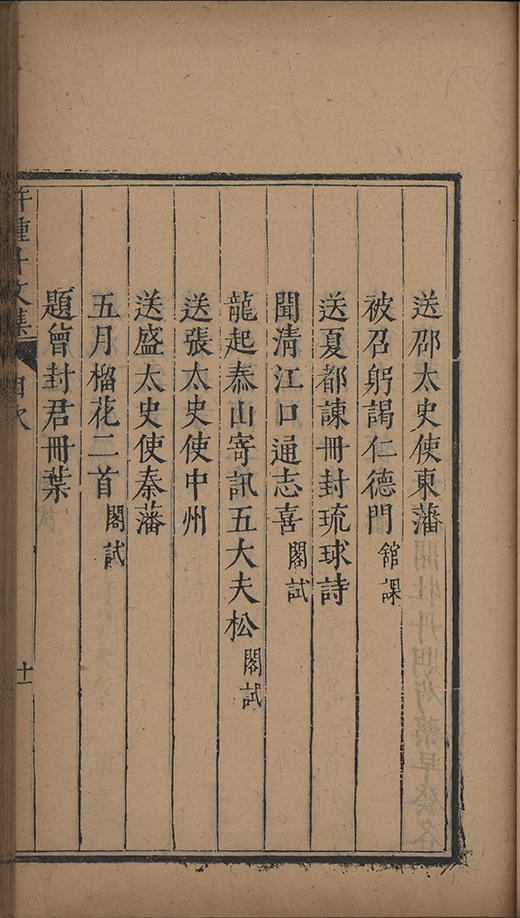 送邵太史使東藩
被召躬謁仁德門 舘課
送夏都諫冊封琉球詩
聞清江口通志喜 閣試
龍起泰山寄訊五大夫松 閣試
送張太史使中州
送盛太史使秦藩
五月榴花二首 閣試
題曾封君冊葉
許鍾斗文集 目次 十一